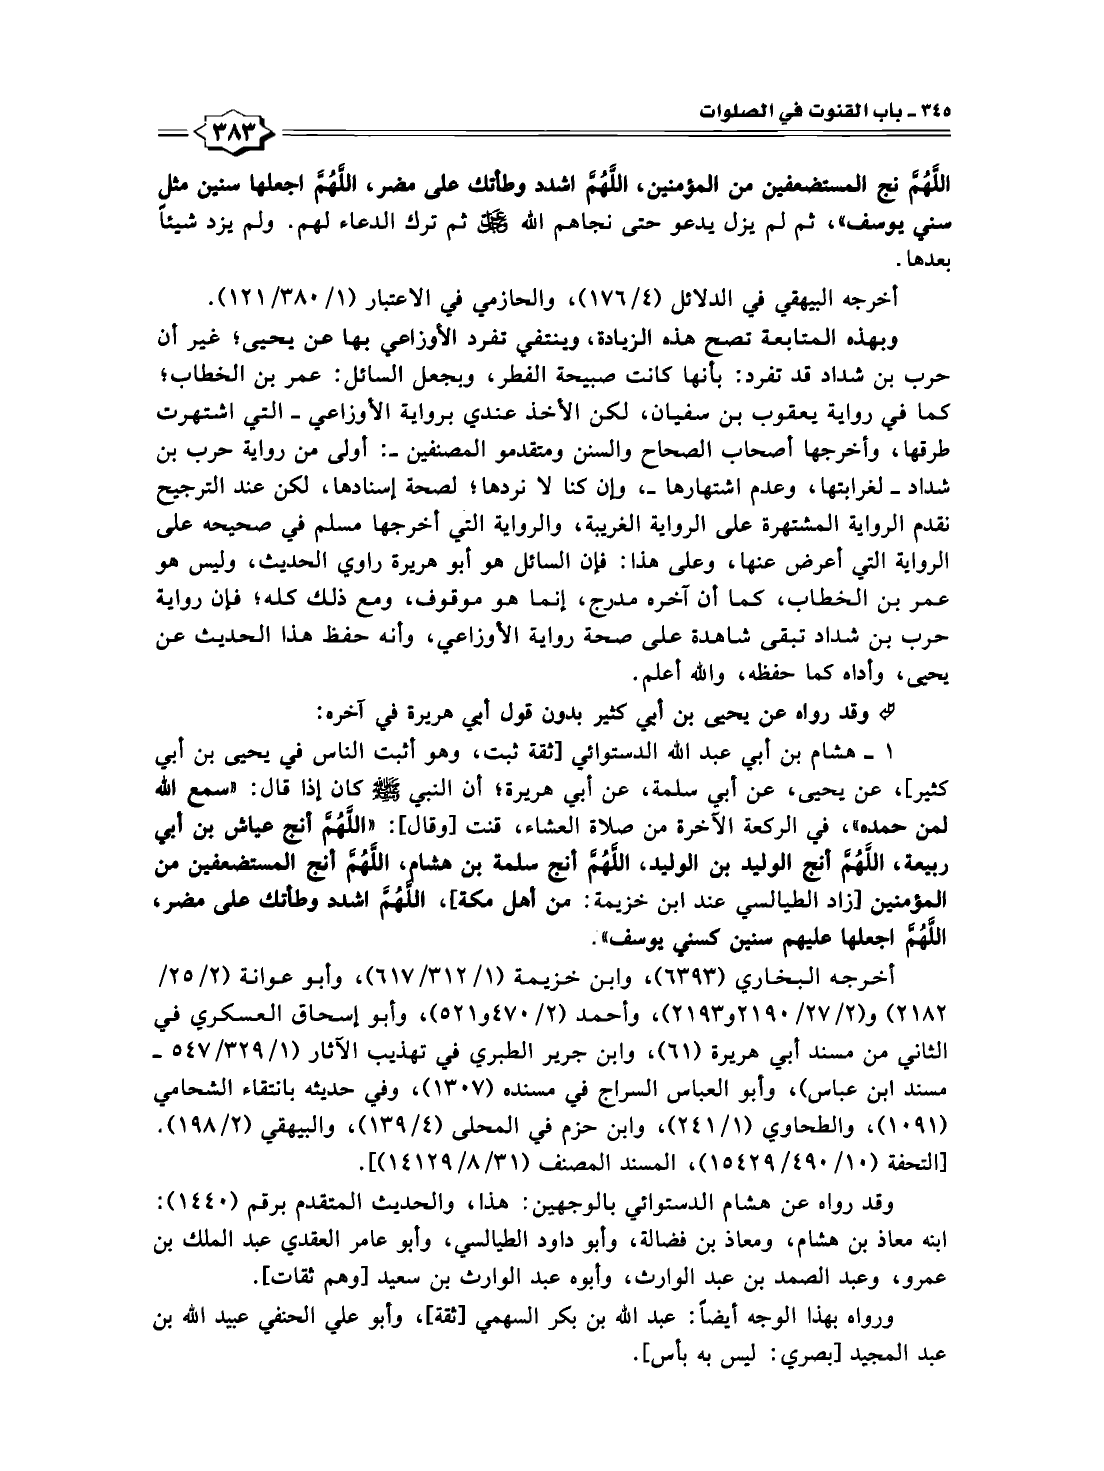 ٣٤٥ - باب القنوت في الصلوات
٣٨٣
اللَّهُمَّ نج المستضعفين من المؤمنين، اللَّهُمَّ اشدد وطأتك على مضر، اللَّهُمَّ اجعلها سنين مثل
سني يوسف»، ثم لم يزل يدعو حتى نجاهم الله ﷻ ثم ترك الدعاء لهم. ولم يزد شيئاً
بعدها.
أخرجه البيهقي في الدلائل (٤/ ١٧٦)، والحازمي في الاعتبار (١/ ٣٨٠/ ١٢١).
وبهذه المتابعة تصح هذه الزيادة، وينتفي تفرد الأوزاعي بها عن يحيى؛ غير أن
حرب بن شداد قد تفرد: بأنها كانت صبيحة الفطر، وبجعل السائل: عمر بن الخطاب؛
كما في رواية يعقوب بن سفيان، لكن الأخذ عندي برواية الأوزاعي ـ التي اشتهرت
طرقها، وأخرجها أصحاب الصحاح والسنن ومتقدمو المصنفين ـ: أولى من رواية حرب بن
شداد ـ لغرابتها، وعدم اشتهارها ـ، وإن كنا لا نردها؛ لصحة إسنادها، لكن عند الترجيح
نقدم الرواية المشتهرة على الرواية الغريبة، والرواية التي أخرجها مسلم في صحيحه على
الرواية التي أعرض عنها، وعلى هذا: فإن السائل هو أبو هريرة راوي الحديث، وليس هو
عمر بن الخطاب، كما أن آخره مدرج، إنما هو موقوف، ومع ذلك كله؛ فإن رواية
حرب بن شداد تبقى شاهدة على صحة رواية الأوزاعي، وأنه حفظ هذا الحديث عن
يحيى، وأداه كما حفظه، والله أعلم.
وقد رواه عن يحيى بن أبي كثير بدون قول أبي هريرة في آخره:
١ ـ هشام بن أبي عبد الله الدستوائي [ثقة ثبت، وهو أثبت الناس في يحيى بن أبي
كثير]، عن يحيى، عن أبي سلمة، عن أبي هريرة؛ أن النبي ﷺ كان إذا قال: «سمع الله
لمن حمده»، في الركعة الآخرة من صلاة العشاء، قنت [وقال]: «اللَّهُمَّ أنج عياش بن أبي
ربيعة، اللَّهُمَّ أنج الوليد بن الوليد، اللَّهُمَّ أنج سلمة بن هشام، اللَّهُمَّ أنج المستضعفين من
المؤمنين [زاد الطيالسي عند ابن خزيمة: من أهل مكة]، اللَّهُمَّ اشدد وطأتك على مضر،
اللَّهُمَّ اجعلها عليهم سنين كسني يوسف».
أخرجه البخاري (٦٣٩٣)، وابن خزيمة (١/ ٣١٢/ ٦١٧)، وأبو عوانة (٢/ ٢٥/
٢١٨٢) و(٢/ ٢٧/ ٢١٩٠و٢١٩٣)، وأحمد (٢/ ٤٧٠و٥٢١)، وأبو إسحاق العسكري في
الثاني من مسند أبي هريرة (٦١)، وابن جرير الطبري في تهذيب الآثار (١/ ٣٢٩/ ٥٤٧ ـ
مسند ابن عباس)، وأبو العباس السراج في مسنده (١٣٠٧)، وفي حديثه بانتقاء الشحامي
(١٠٩١)، والطحاوي (١/ ٢٤١)، وابن حزم في المحلى (٤/ ١٣٩)، والبيهقي (٢/ ١٩٨).
[التحفة (١٠/ ٤٩٠/ ١٥٤٢٩)، المسند المصنف (٣١/ ٨/ ١٤١٢٩)].
وقد رواه عن هشام الدستوائي بالوجهين: هذا، والحديث المتقدم برقم (١٤٤٠):
ابنه معاذ بن هشام، ومعاذ بن فضالة، وأبو داود الطيالسي، وأبو عامر العقدي عبد الملك بن
عمرو، وعبد الصمد بن عبد الوارث، وأبوه عبد الوارث بن سعيد [وهم ثقات].
ورواه بهذا الوجه أيضاً: عبد الله بن بكر السهمي [ثقة]، وأبو علي الحنفي عبيد الله بن
عبد المجيد [بصري: ليس به بأس].